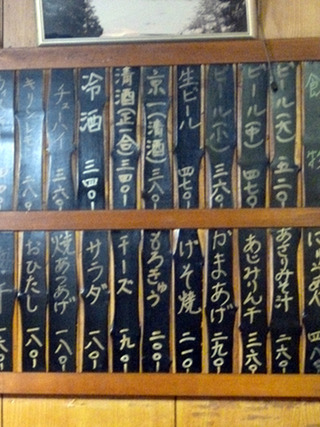 飲物
ビール(大)五二〇
ビール(中)四七〇
ビール(小)三六〇
生ビール四七〇
京一(清酒)三八〇
清酒(正一合)三四〇
冷酒三四〇
チューハイ三六〇
あさりみそ汁二六〇
あじみりん干三六〇
がまあげ二九〇
げそ焼二一〇
もろきゅう二〇〇
チーズ一九〇
サラダ一八〇
焼あつあげ一八〇
おひたし一八〇